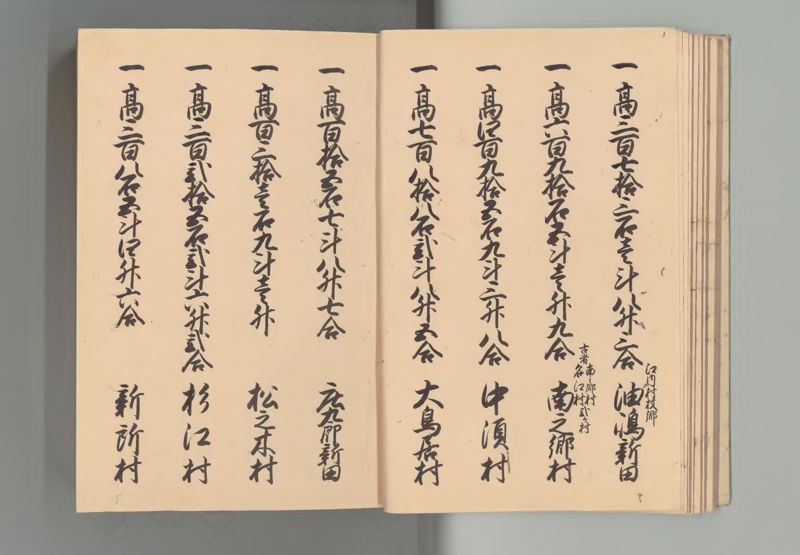 江川村枝郷
一高三百七拾三石壱斗八升三合 油嶋新田
古者南之郷村
名江村弐ケ村
一高六百九拾石五斗壱升九合 南之郷村
一高四百九拾五石九斗三升八合 中須村
一高七百八拾八石弐斗八升五合 大鳥居村
一高百拾五石七斗八升七合 庄九郎新田
一高百三拾壱石九斗壱升 松之木村
一高三百弐拾五石弐斗六升弐合 杉江村
一高三百八石五斗四升六合 新所村